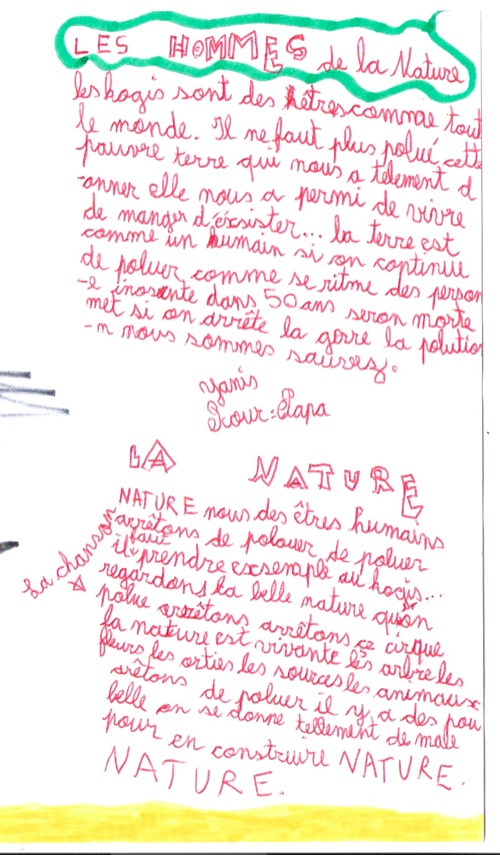 LES HOMMES de la Nature
les kogis sont des hêtres comme tout
le monde. Il ne faut plus polué cette
pauvre terre qui nous a télement d
-onner elle nous a permi de vivre
de manger d'éxsister... la terre est
comme un humain si on continue
de poluer comme se ritme des person
-e inosente dans 50 ans seron morte
met si on arrête la gerre la polution
-n nous sommes sauvez.
Yanis
Pour: Papa
LA NATURE
NATURE nous des êtres humains
arrêtons de polouer de poluer
il faut prendre exsemple au hogis...
regardons la belle nature qu'on
polue arrêtons arrêtons ce cirque
la nature est vivante les arbre les
fleurs les orties les sources les animaux
arêtons de poluer il y a des pou
belle on se donne tellement de male
pour en construire NATURE.
NATURE.
La chanson